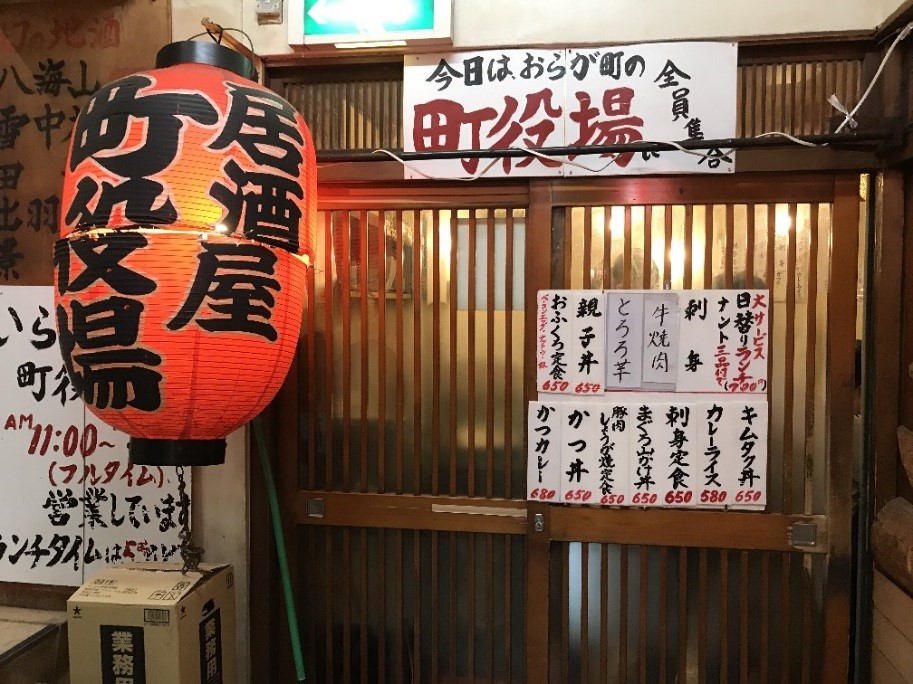 の地酒
八海山
雪中
居酒屋
町役場
今日は、おらが町の
町役場に
全員集合
大サービス
日替りランチ
ナント三品付て
刺身
牛焼肉
とろろ芋
親子丼 650
おふくろ定食 650
キムタク丼 650
カレーライス 580
刺身定食 650
まぐろ山かけ丼 650
豚肉しょうが焼定食 650
かつ丼 650
かつカレー 680
町役
AM 11:00~
(フルタイム)
営業しています
ランチタイムは
業務用
業務用